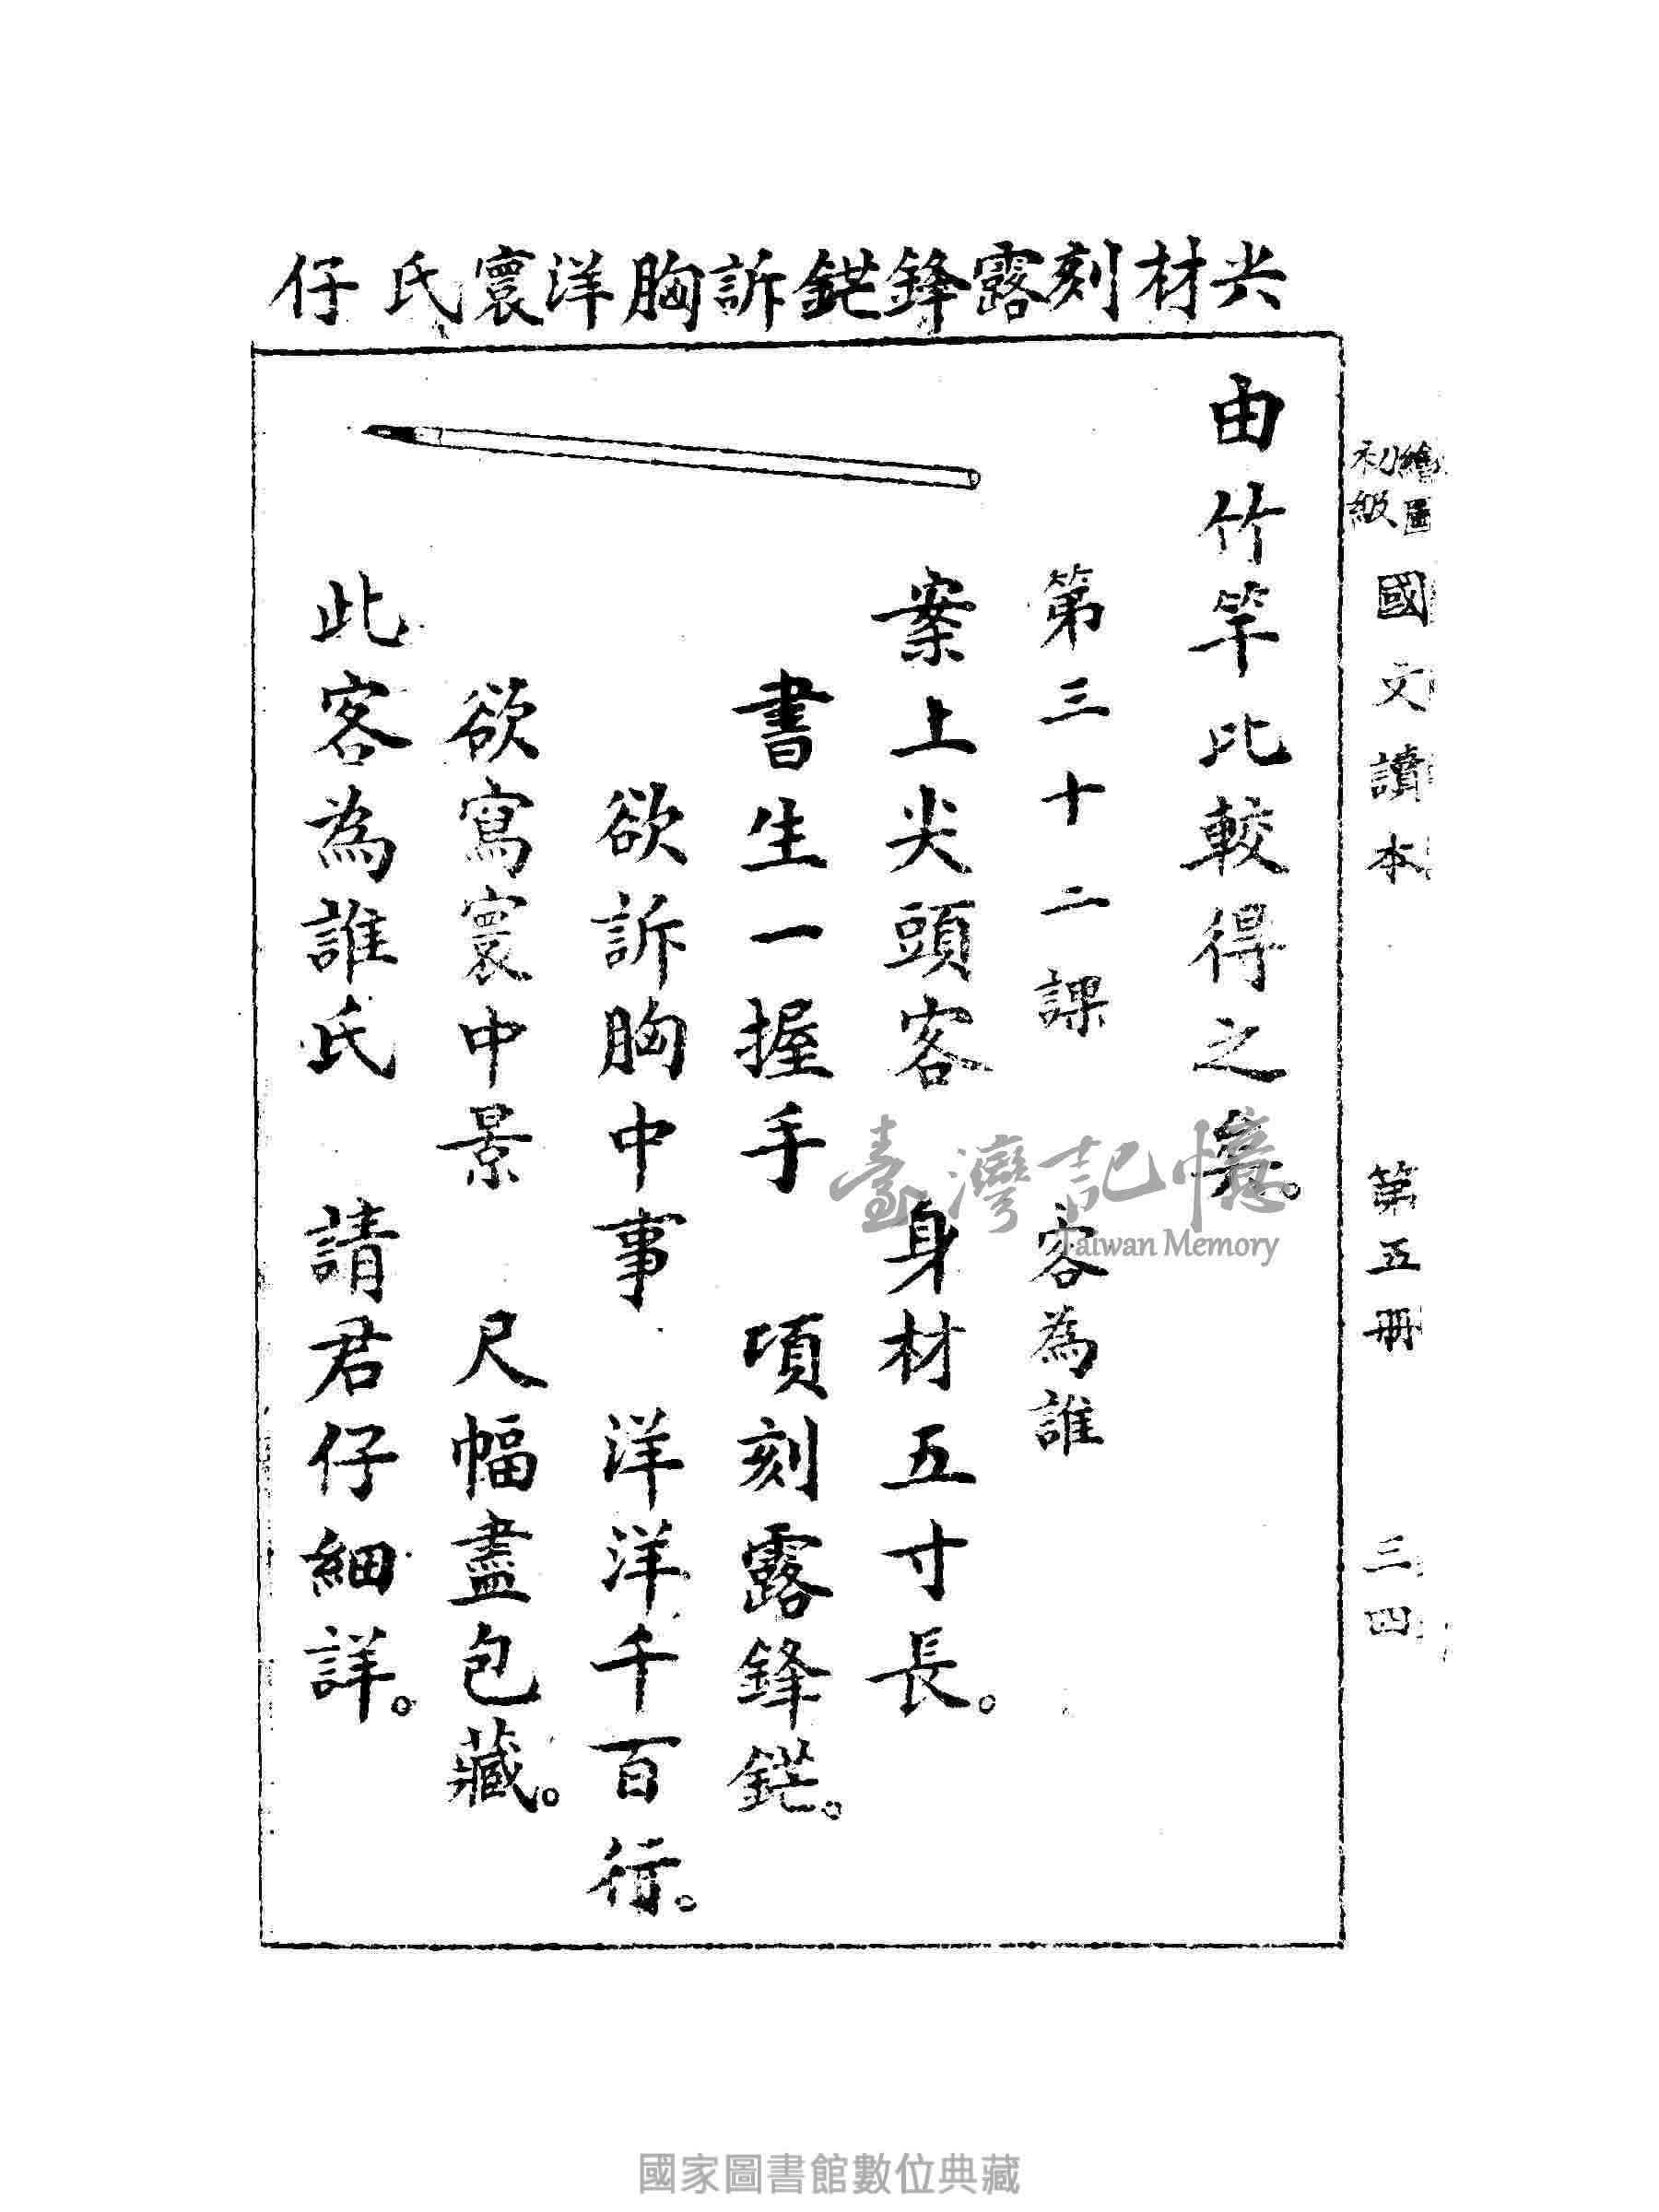 尖材刻露鋒鋩訴胸洋寰氏仔
繪圖
初級
國文讀本 第五冊 三四
由竹竿比較得之矣。
第三十二課 客為誰
案上尖頭客 身材五寸長。
書生一握手 項刻露鋒鋩。
欲訴胸中事 洋洋千百行。
欲寫寰中景 尺幅盡包藏。
此客為誰氏 請君仔細詳。
臺灣記憶
Taiwan Memory
國家圖書館數位典藏